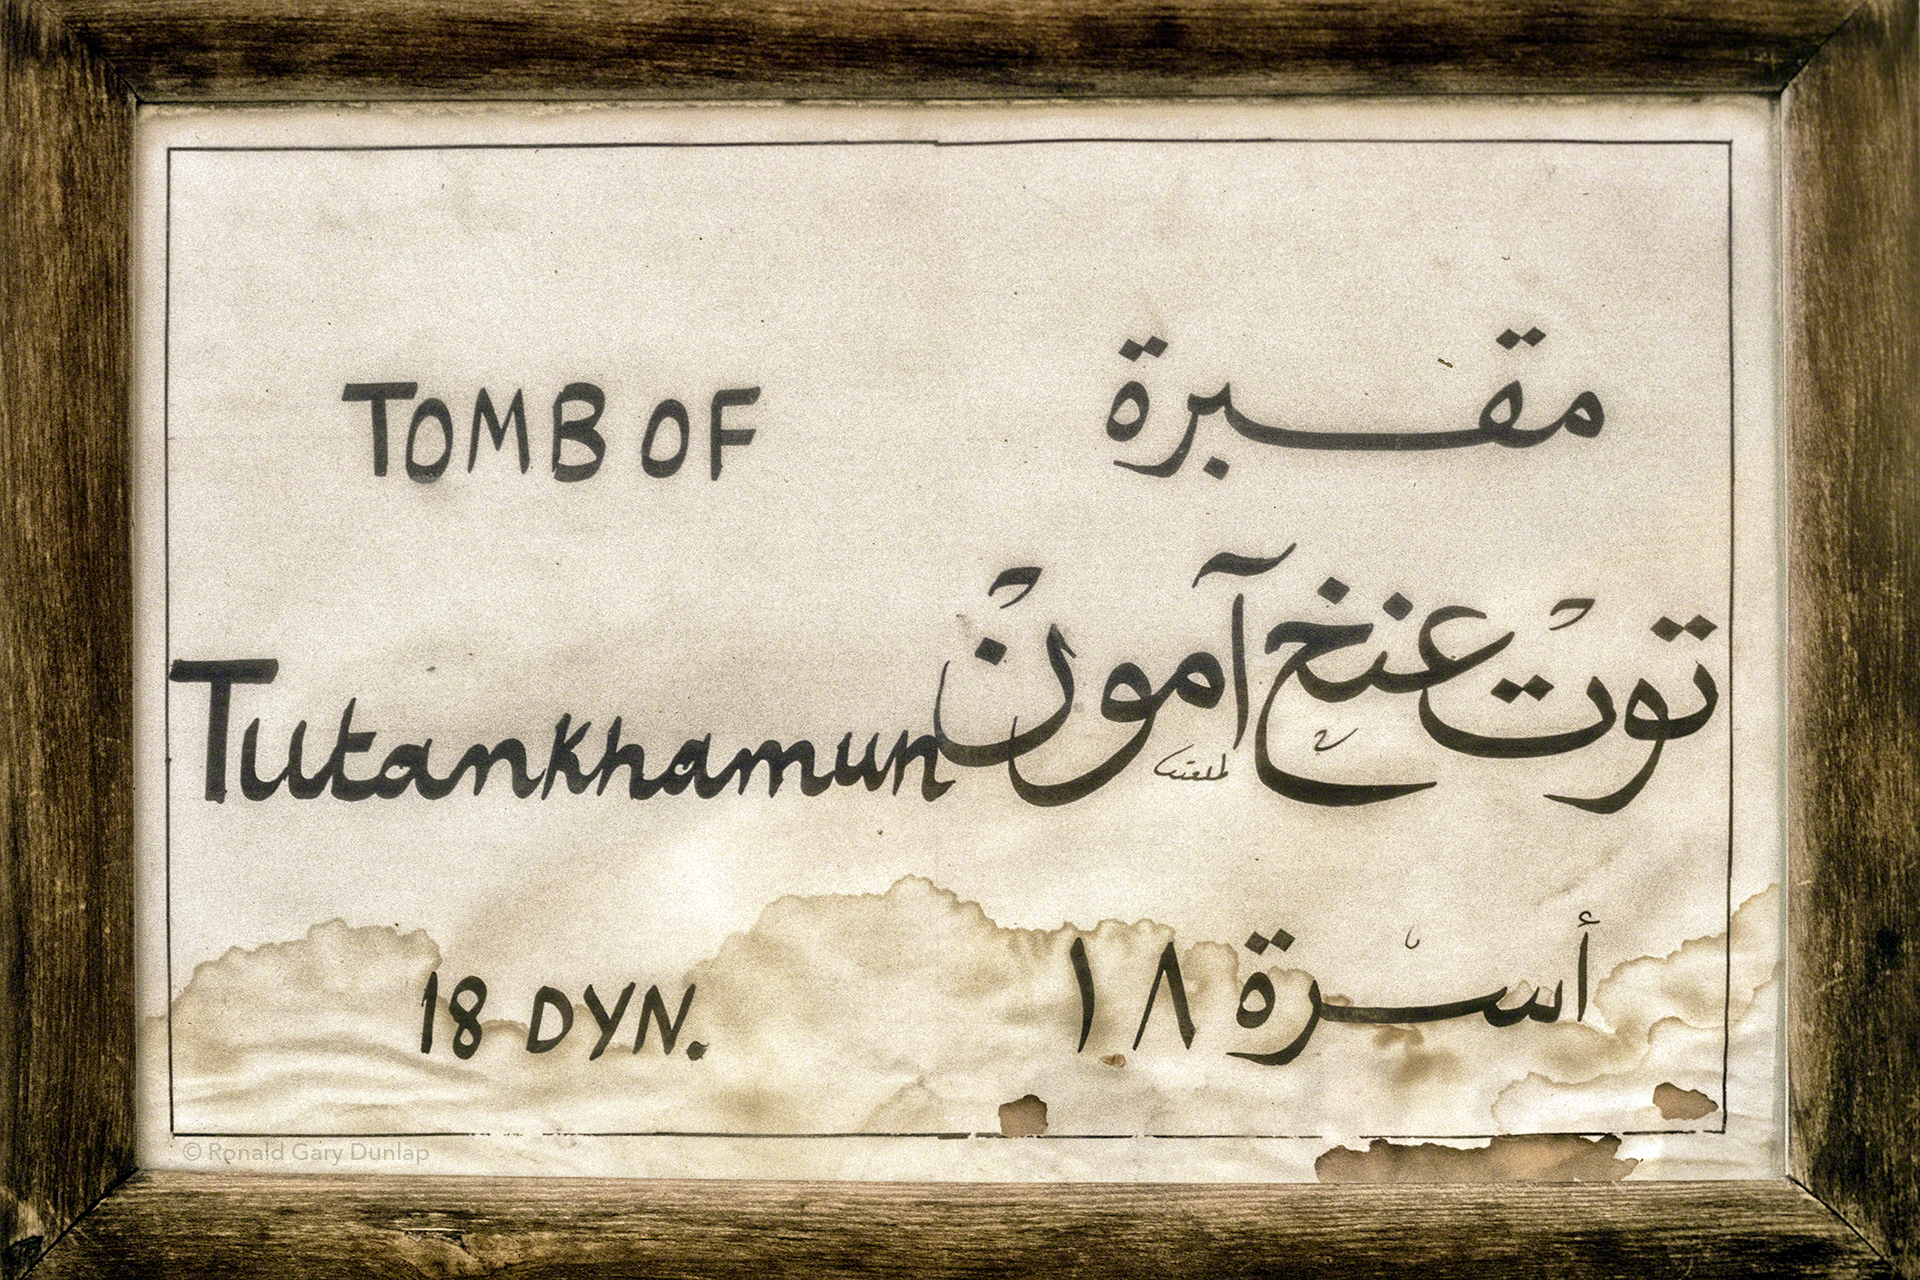 TOMB OF
مقبرة
Tutankhamun
توتْ عنخ آمونْ
18 DYN.
أسرة ١٨
© Ronald Gary Dunlap